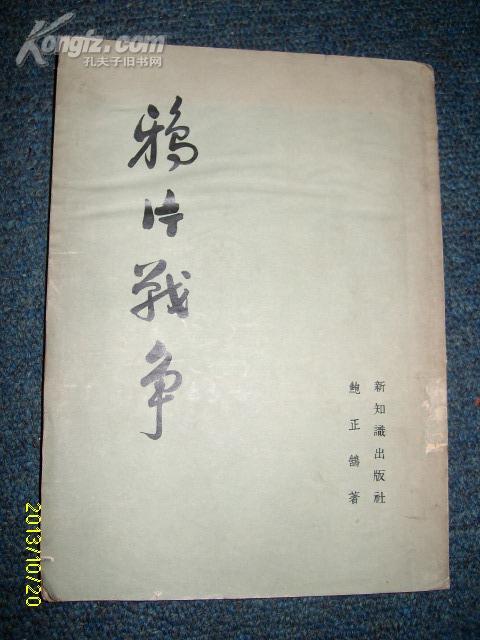 Kongfz.com
孔夫子旧书网
鴉片戰争
新知識出版社
鮑正鵠著
2013/10/20